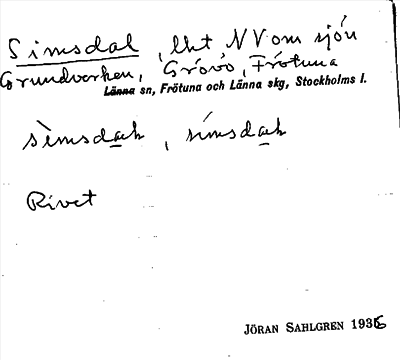 Simsdal, lht NV om sjön
Grundvorken, Grövö, Frötuna
Länna sn, Frötuna och Länna skg, Stockholms l.
sìmsdaɫ, símsdaɫ
Rivet
JÖRAN SAHLGREN 1936